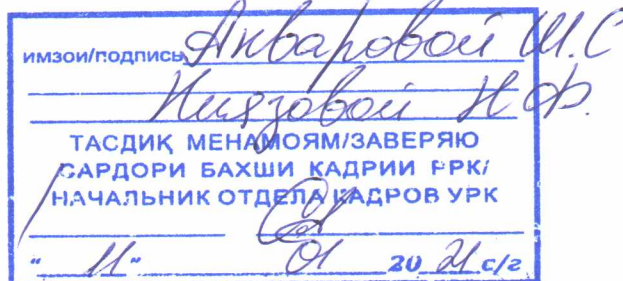 имзои/подпись Анваровой Ш.С
Ниязовой Н.Ф.
ТАСДИҚ МЕНАМОЯМ/ЗАВЕРЯЮ
САРДОРИ БАХШИ КАДРИИ РРК/
НАЧАЛЬНИК ОТДЕЛА КАДРОВ УРК
"11" 01 2021 с/г